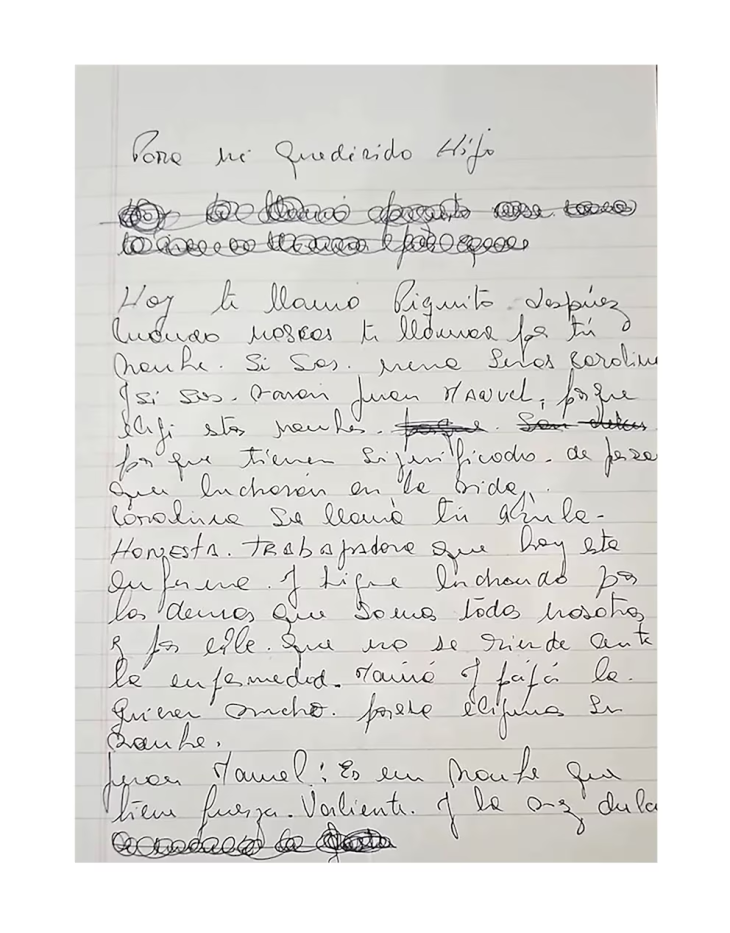 Para mi Quedirido Hijo
Hoy te llamo Piquito despúez
Cuando nascas te llamara por tú
nombre. Si Sos. nena Seras Carolina
Y si sos. Varon Juan Manuel, porque
Elifi stos nombres.
por que tienen Significado. de perso
que lucharon en la vida,
Carolina se llama tú abuela-
Honesta. Trabajadora que hoy esta
enferma. y sigue luchando por
los demas que somos todos nosotros
y por ella. que no se rinde ante
la enfermedad. Mamá y papá la.
quieren mucho. para elijima su
nombre.
Juan Manuel: Es un nombre que
tiene fuerza. Valiente. y la vez dulce